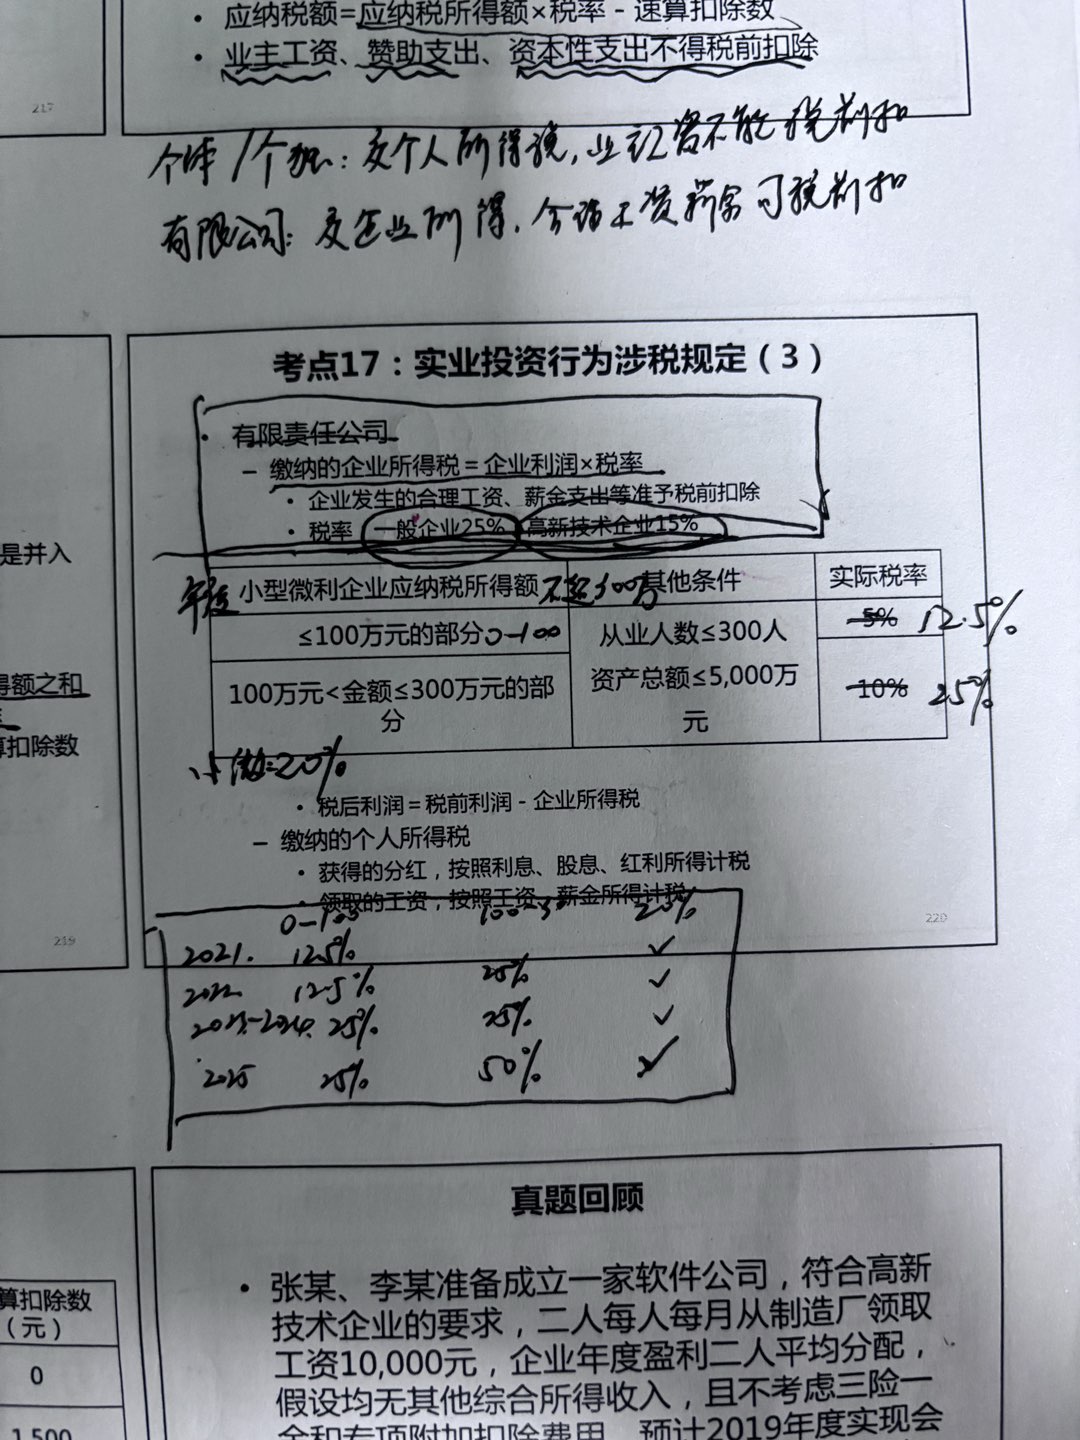 应纳税额=应纳税所得额×税率 - 速算扣除数
业主工资、赞助支出、资本性支出不得税前扣除
217
个体/个独：交个人所得税，业主工资不能税前扣
有限公司：交企业所得，合理工资薪金可税前扣
考点17：实业投资行为涉税规定（3）
有限责任公司
缴纳的企业所得税 = 企业利润×税率
企业发生的合理工资、薪金支出等准予税前扣除
税率 一般企业25% 高新技术企业15%
是并入
年度 小型微利企业应纳税所得额 不超300万 其他条件 实际税率
≤100万元的部分 0-100 从业人数≤300人 5% 12.5%
得额之和 100万元<金额≤300万元的部分 资产总额≤5,000万元 10% 25%
算扣除数
小微=20%
税后利润 = 税前利润 - 企业所得税
缴纳的个人所得税
获得的分红，按照利息、股息、红利所得计税
领取的工资，按照工资、薪金所得计税
220
219
0-100 20%
2021. 12.5% ✓
2022 12.5% 25% ✓
2023-2024. 25% 25% ✓
2025 25% 50% ✓
真题回顾
张某、李某准备成立一家软件公司，符合高新
技术企业的要求，二人每人每月从制造厂领取
工资10,000元，企业年度盈利二人平均分配，
假设均无其他综合所得收入，且不考虑三险一
金和专项附加扣除费用 预计2019年度实现会
算扣除数
（元）
0
1,500